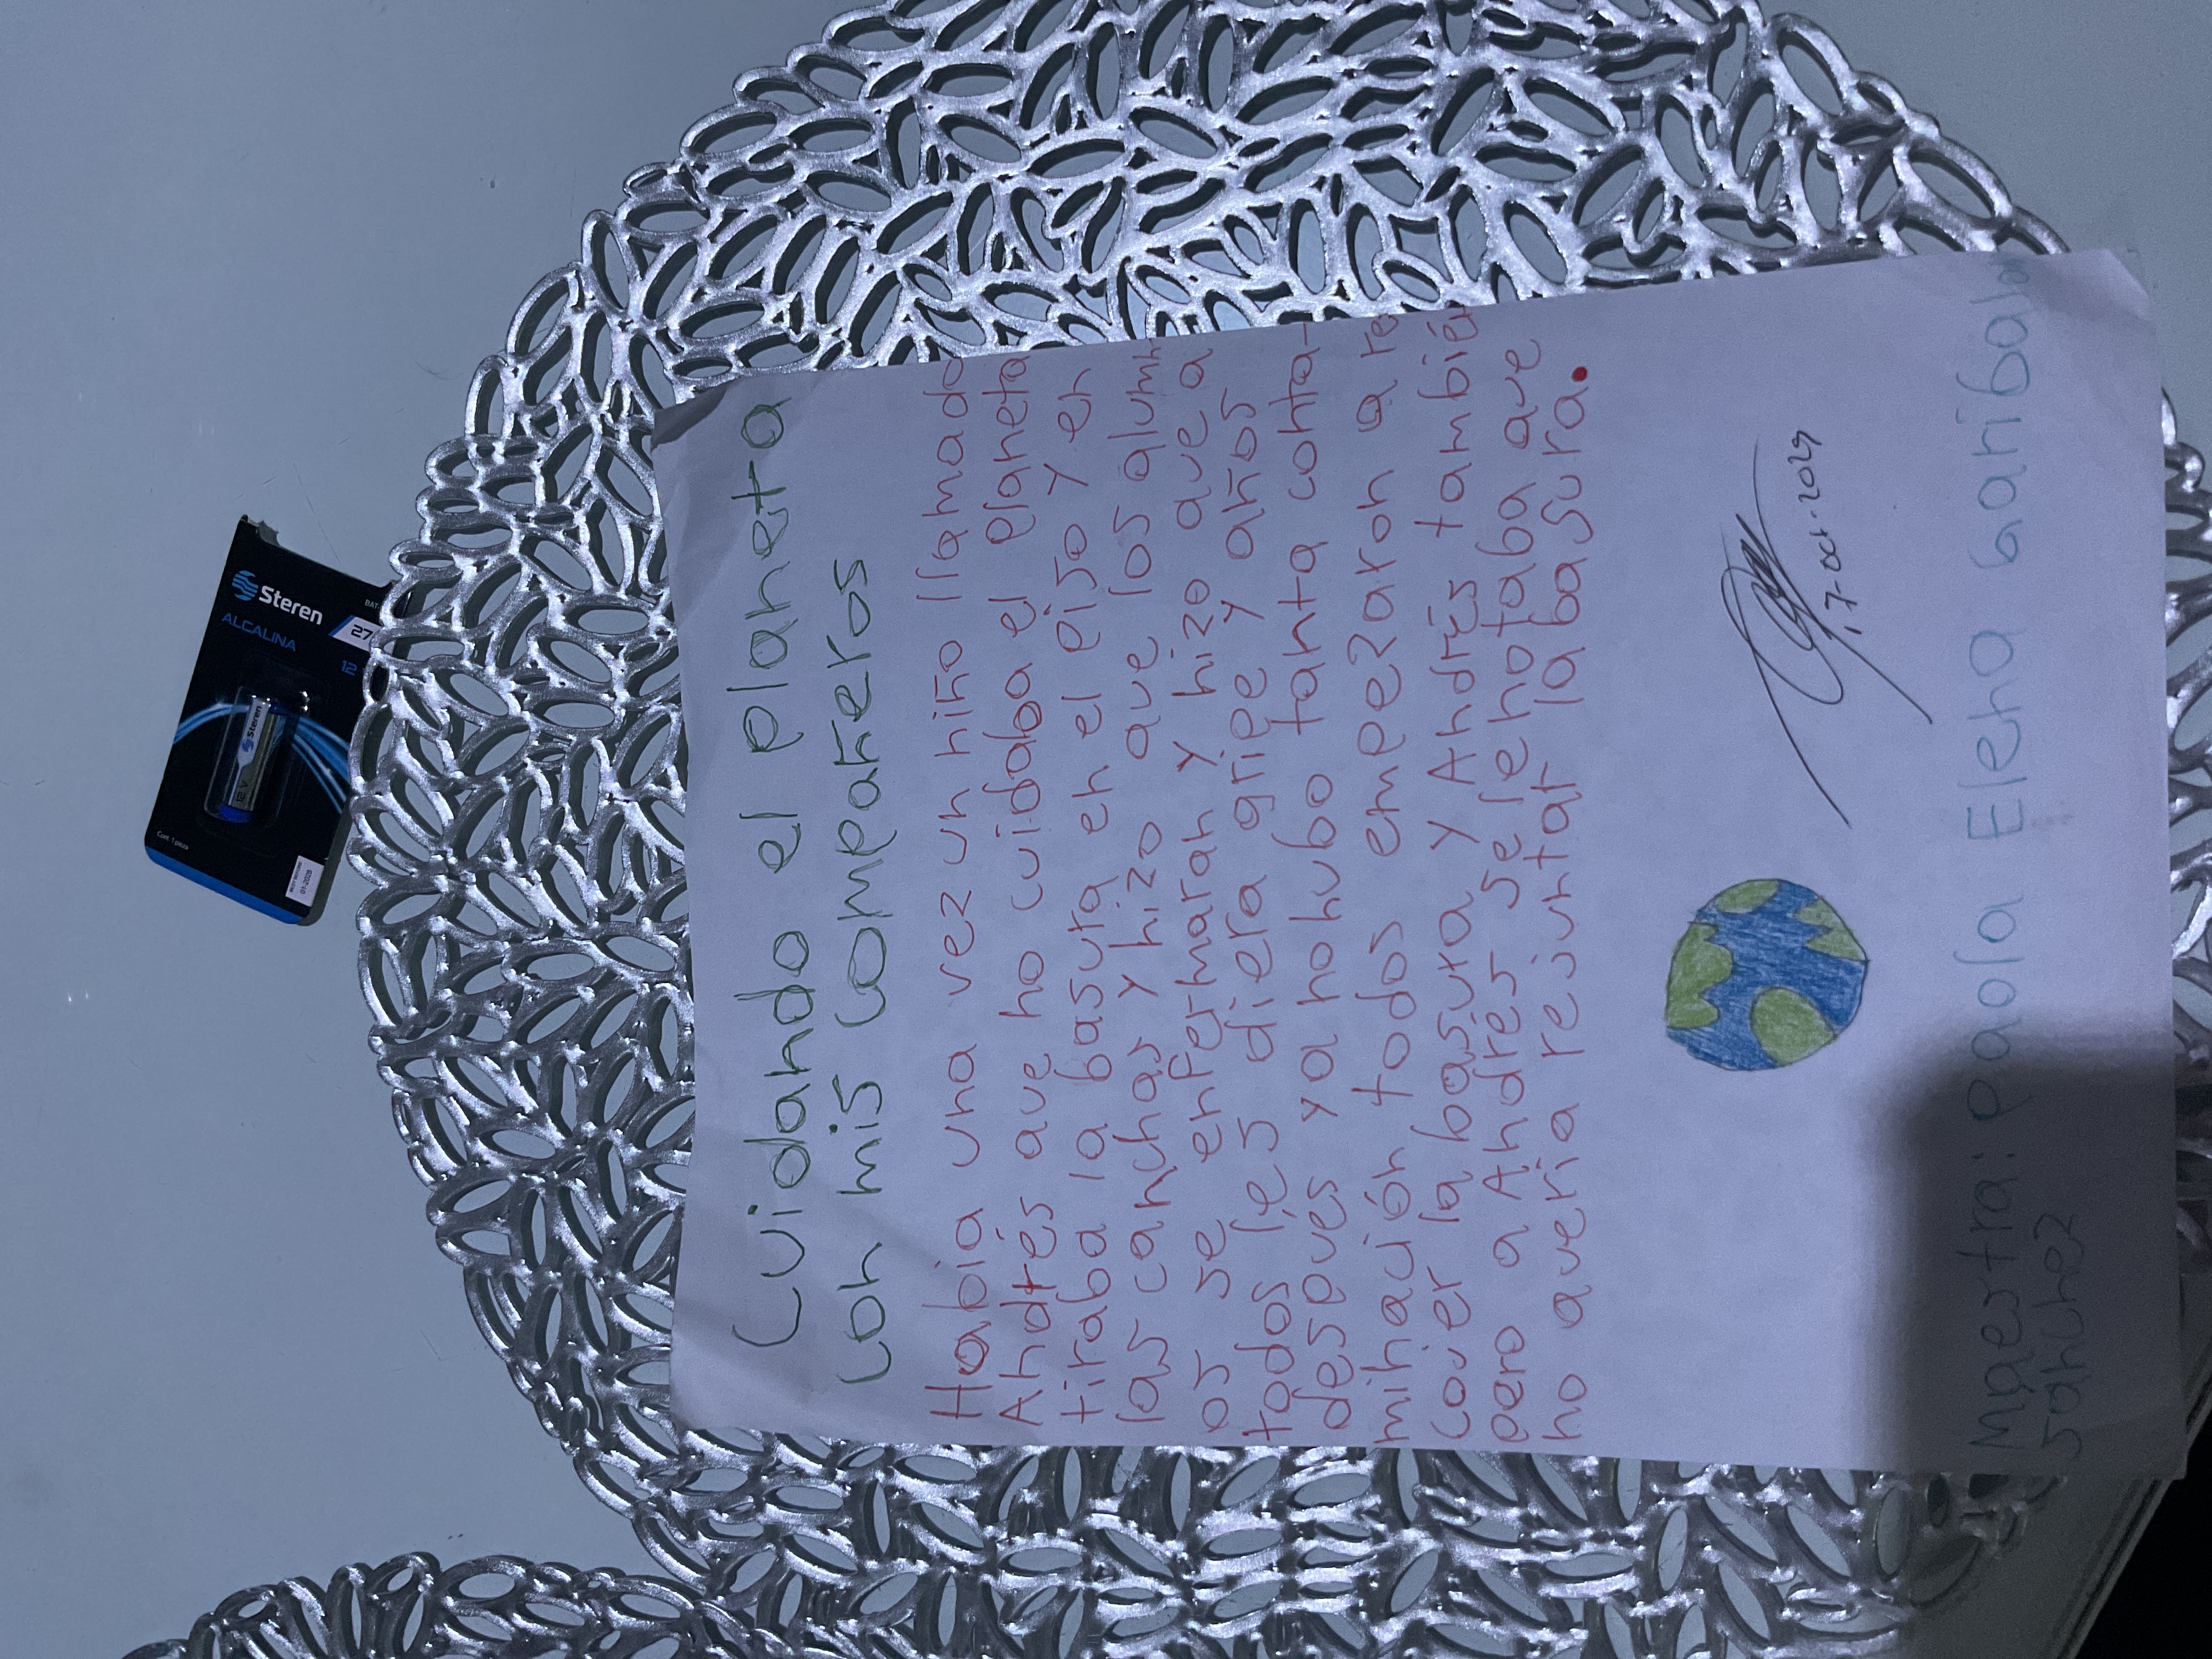 Cuidando el planeta
con mis compañeros
Había una vez un niño llamado
Andrés que no cuidaba el planeta
tiraba la basura en el piso y en
las canchas y hizo que los alumn
os se enfermaran y hizo que a
todos les diera gripe y años
después ya no hubo tanta conta-
minación todos empezaron a re
cojer la basura y Andrés también
pero a Andrés se le notaba que
no quería rejuntar la basura.
17-oct-2024
Maestra: Paola Elena Garibaldi
Sanchez
Steren
ALCALINA
BAT
27
12
Steren
12 V
Cont. 1 pieza
01-2028